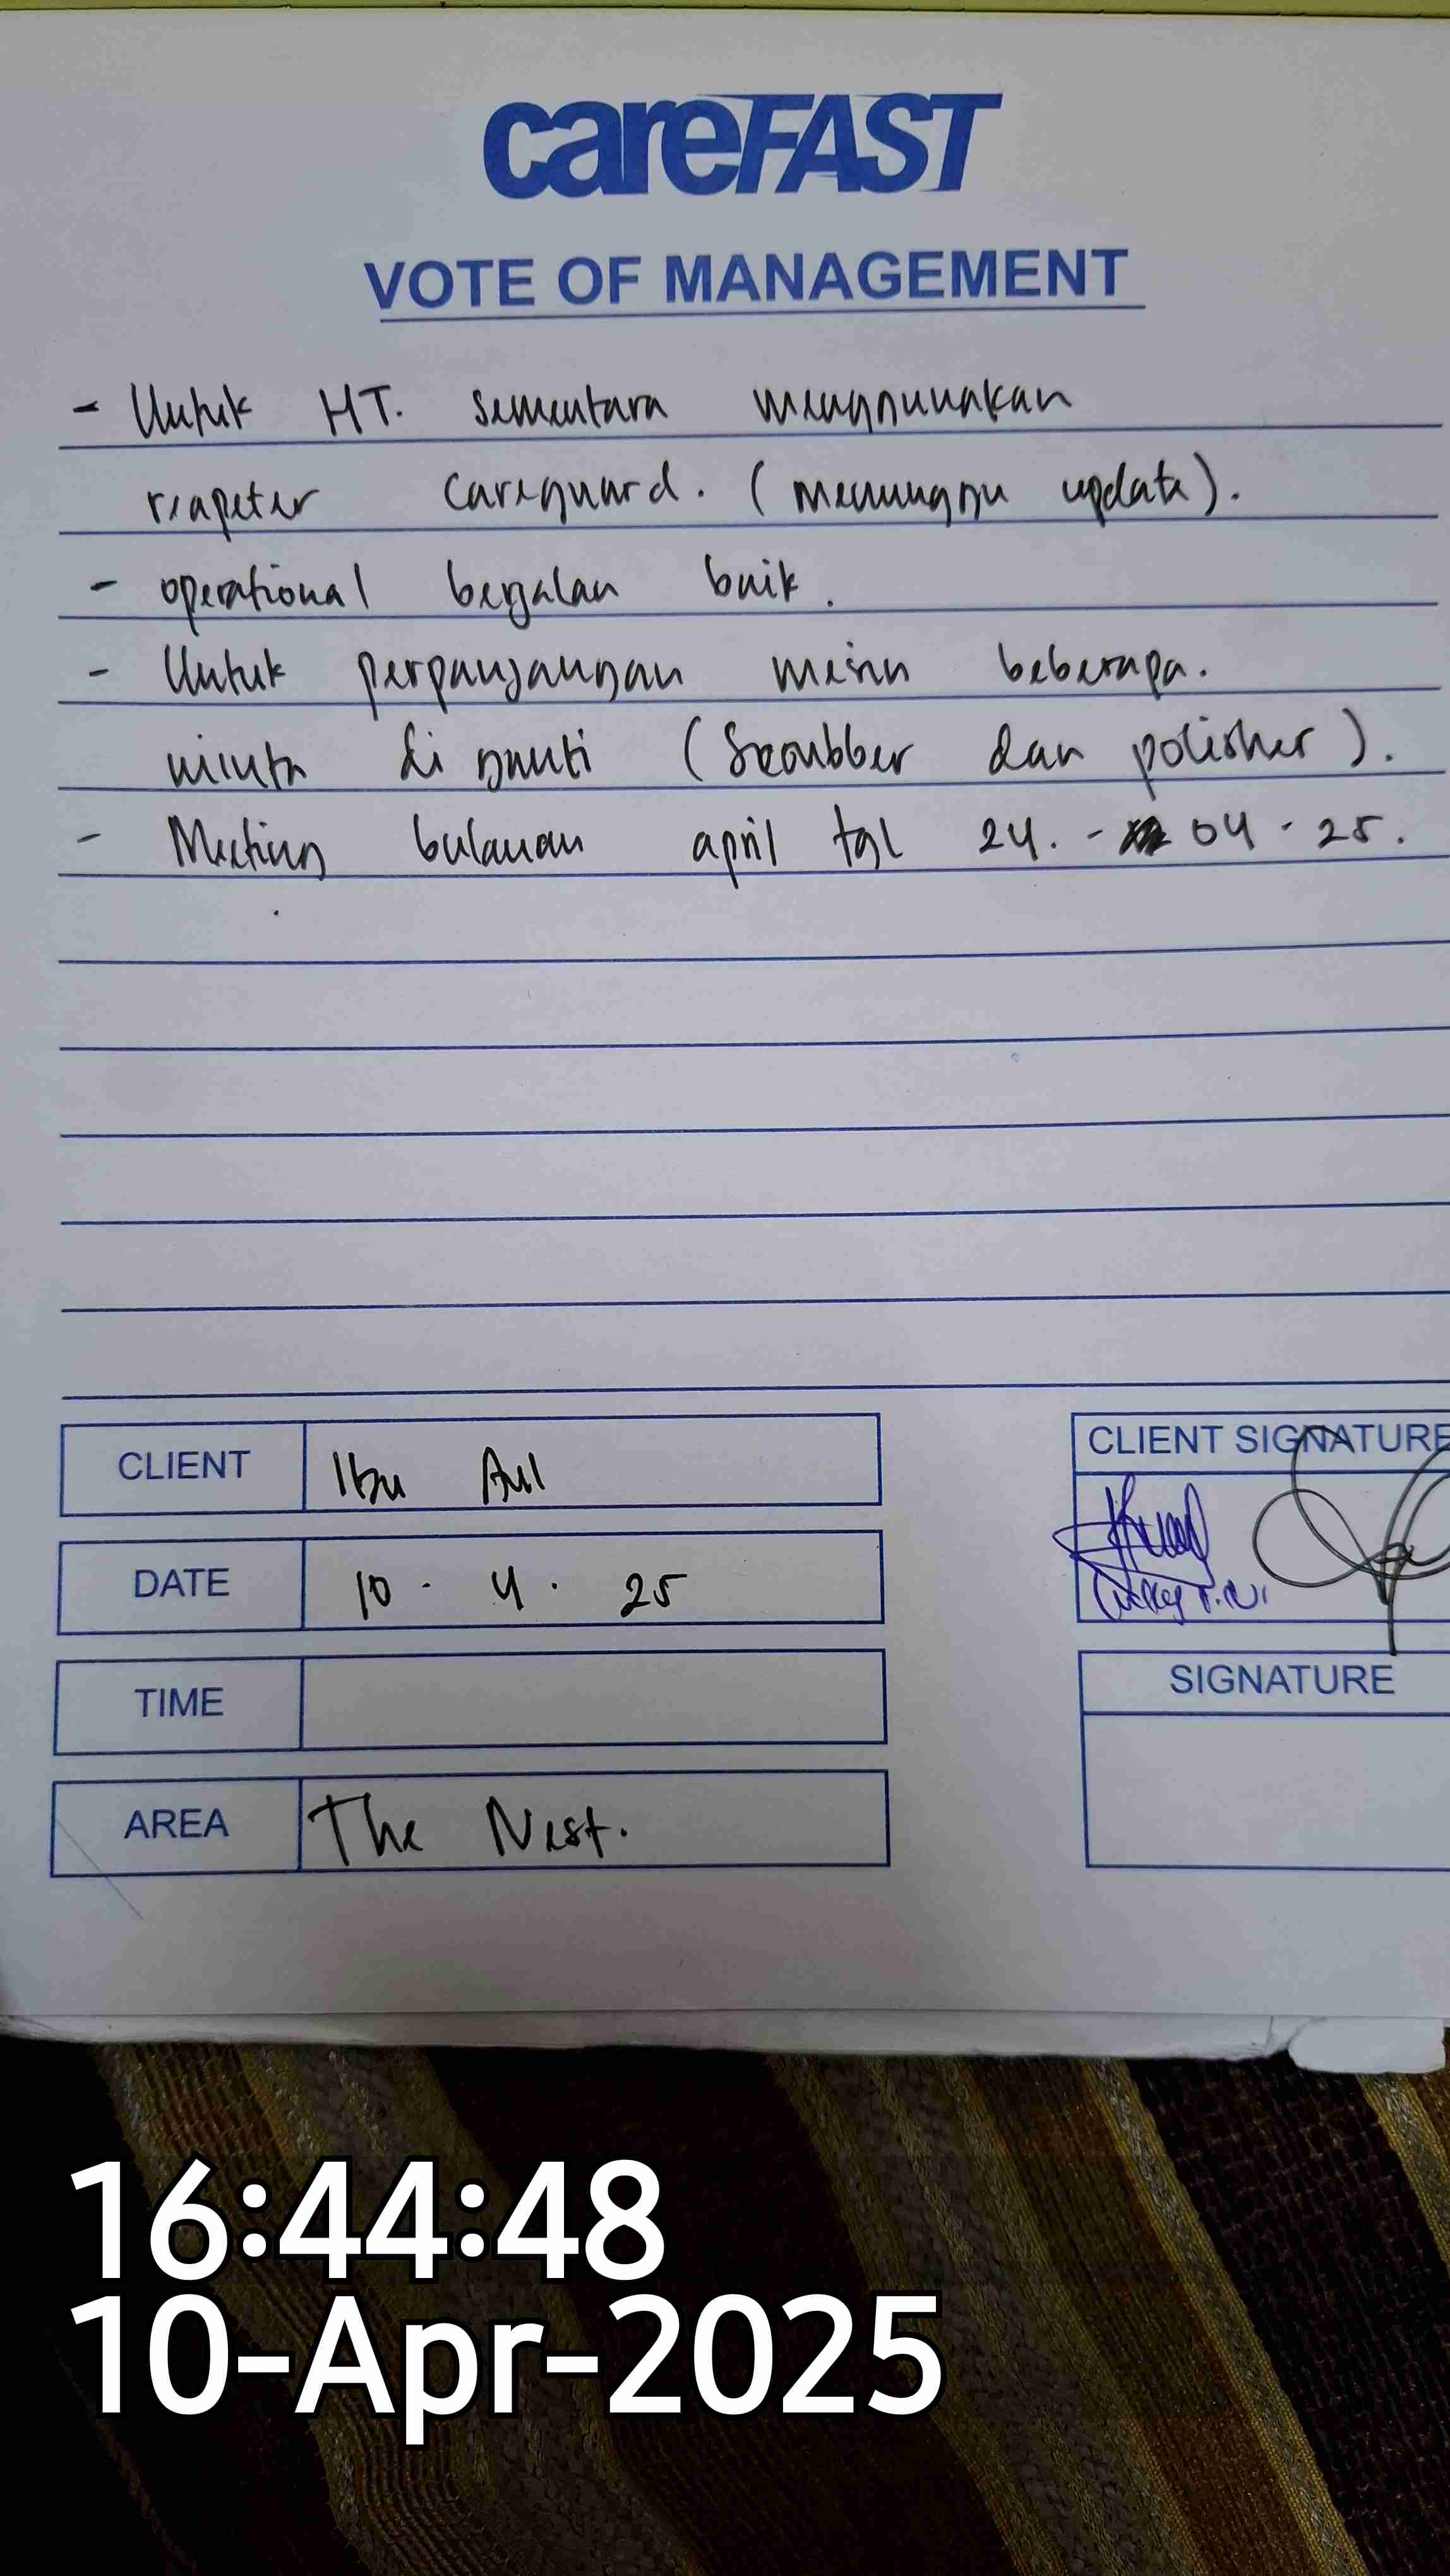 careFAST
VOTE OF MANAGEMENT
- Untuk HT. sementara menggunakan
reapeter careguard. (menunggu update).
- operational berjalan baik.
- Untuk perpanjangan mesin beberapa.
minta di ganti (Scrubber dan polisher).
- Meeting bulanan april tgl 24. - 04 - 25.
CLIENT Ibu Aul
CLIENT SIGNATURE
DATE 10 . 4 . 25
TIME
SIGNATURE
AREA The Nest.
16:44:48
10-Apr-2025